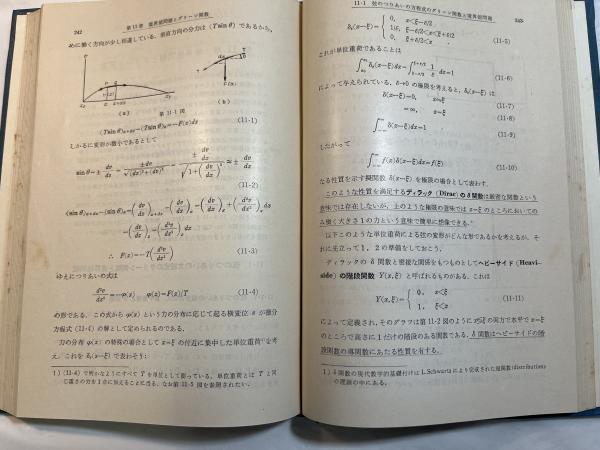 242
第11章 境界値問題とグリーン関数
めに働く方向が少し相違している．垂直方向の分力は (T sin θ) であるから，
(a)
第 11-1 図
(b)
(T sin θ)x+dx−(T sin θ)x=−F(x)dx (11-1)
しかるに変形が微小であるとして
(11-2)
∴ F(x)=−T(d²v/dx²) (11-3)
ゆえにつりあいの式は
d²v/dx²=−φ(x) φ(x)=F(x)/T (11-4)
の形である．この式から φ(x) という力の分布に応じて起る横変位 v が微分
方程式 (11-4) の解として定められるのである．
力の分布 φ(x) の特殊の場合として x=ξ の付近に集中した単位荷重¹⁾を考
え，これを δε(x−ξ) で表わそう：
1) (11-4) で明かなようにすべて T を単位として測っている．単位荷重とは T と同
じ重さの力を1点に加えることに当る．なお第 11-5 図を参照されたい．
11-1 弦のつりあいの方程式のグリーン関数と境界値問題
243
(11-5)
これが単位荷重であることは
(11-6)
によって与えられている．δ→0 の極限を考えると，
δ(x−ξ)=0, x≠ξ (11-7)
=∞, x=ξ (11-8)
∫δ(x−ξ)dx=1 (11-9)
したがって
∫f(x)δ(x−ξ)dx=f(ξ) (11-10)
なる性質を示す擬関数 δ(x−ξ) を極限の場合として表わす．
このような性質を満足するディラック (Dirac) の δ 関数は厳密な関数という
意味では存在しないが，上のような極限の意味では x=ξ のところにおいての
み働く大きさ1の力という意味で簡単に想像できる．¹⁾
以下このような単位荷重による弦の変形がどんな形であるかを考えるが，そ
れに先立って1，2の準備をしておこう．
ディラックの δ 関数と密接な関係をもつものとしてヘビーサイド (Heavi-
side) の階段関数 Y(x,ξ) と呼ばれるものがある．これは
Y(x,ξ)={ 0, x<ξ
1, ξ<x (11-11)
によって定義され，そのグラフは第 11-2 図のように の両方で水平で x=ξ
のところで高さに1だけの階段のある関数である．δ 関数はヘビーサイドの階
段関数の導関数にあたる性質を有する．
1) δ 関数の現代数学的基礎付けは L. Schwartz により完成された超関数(distribution)
の理論の中にある．